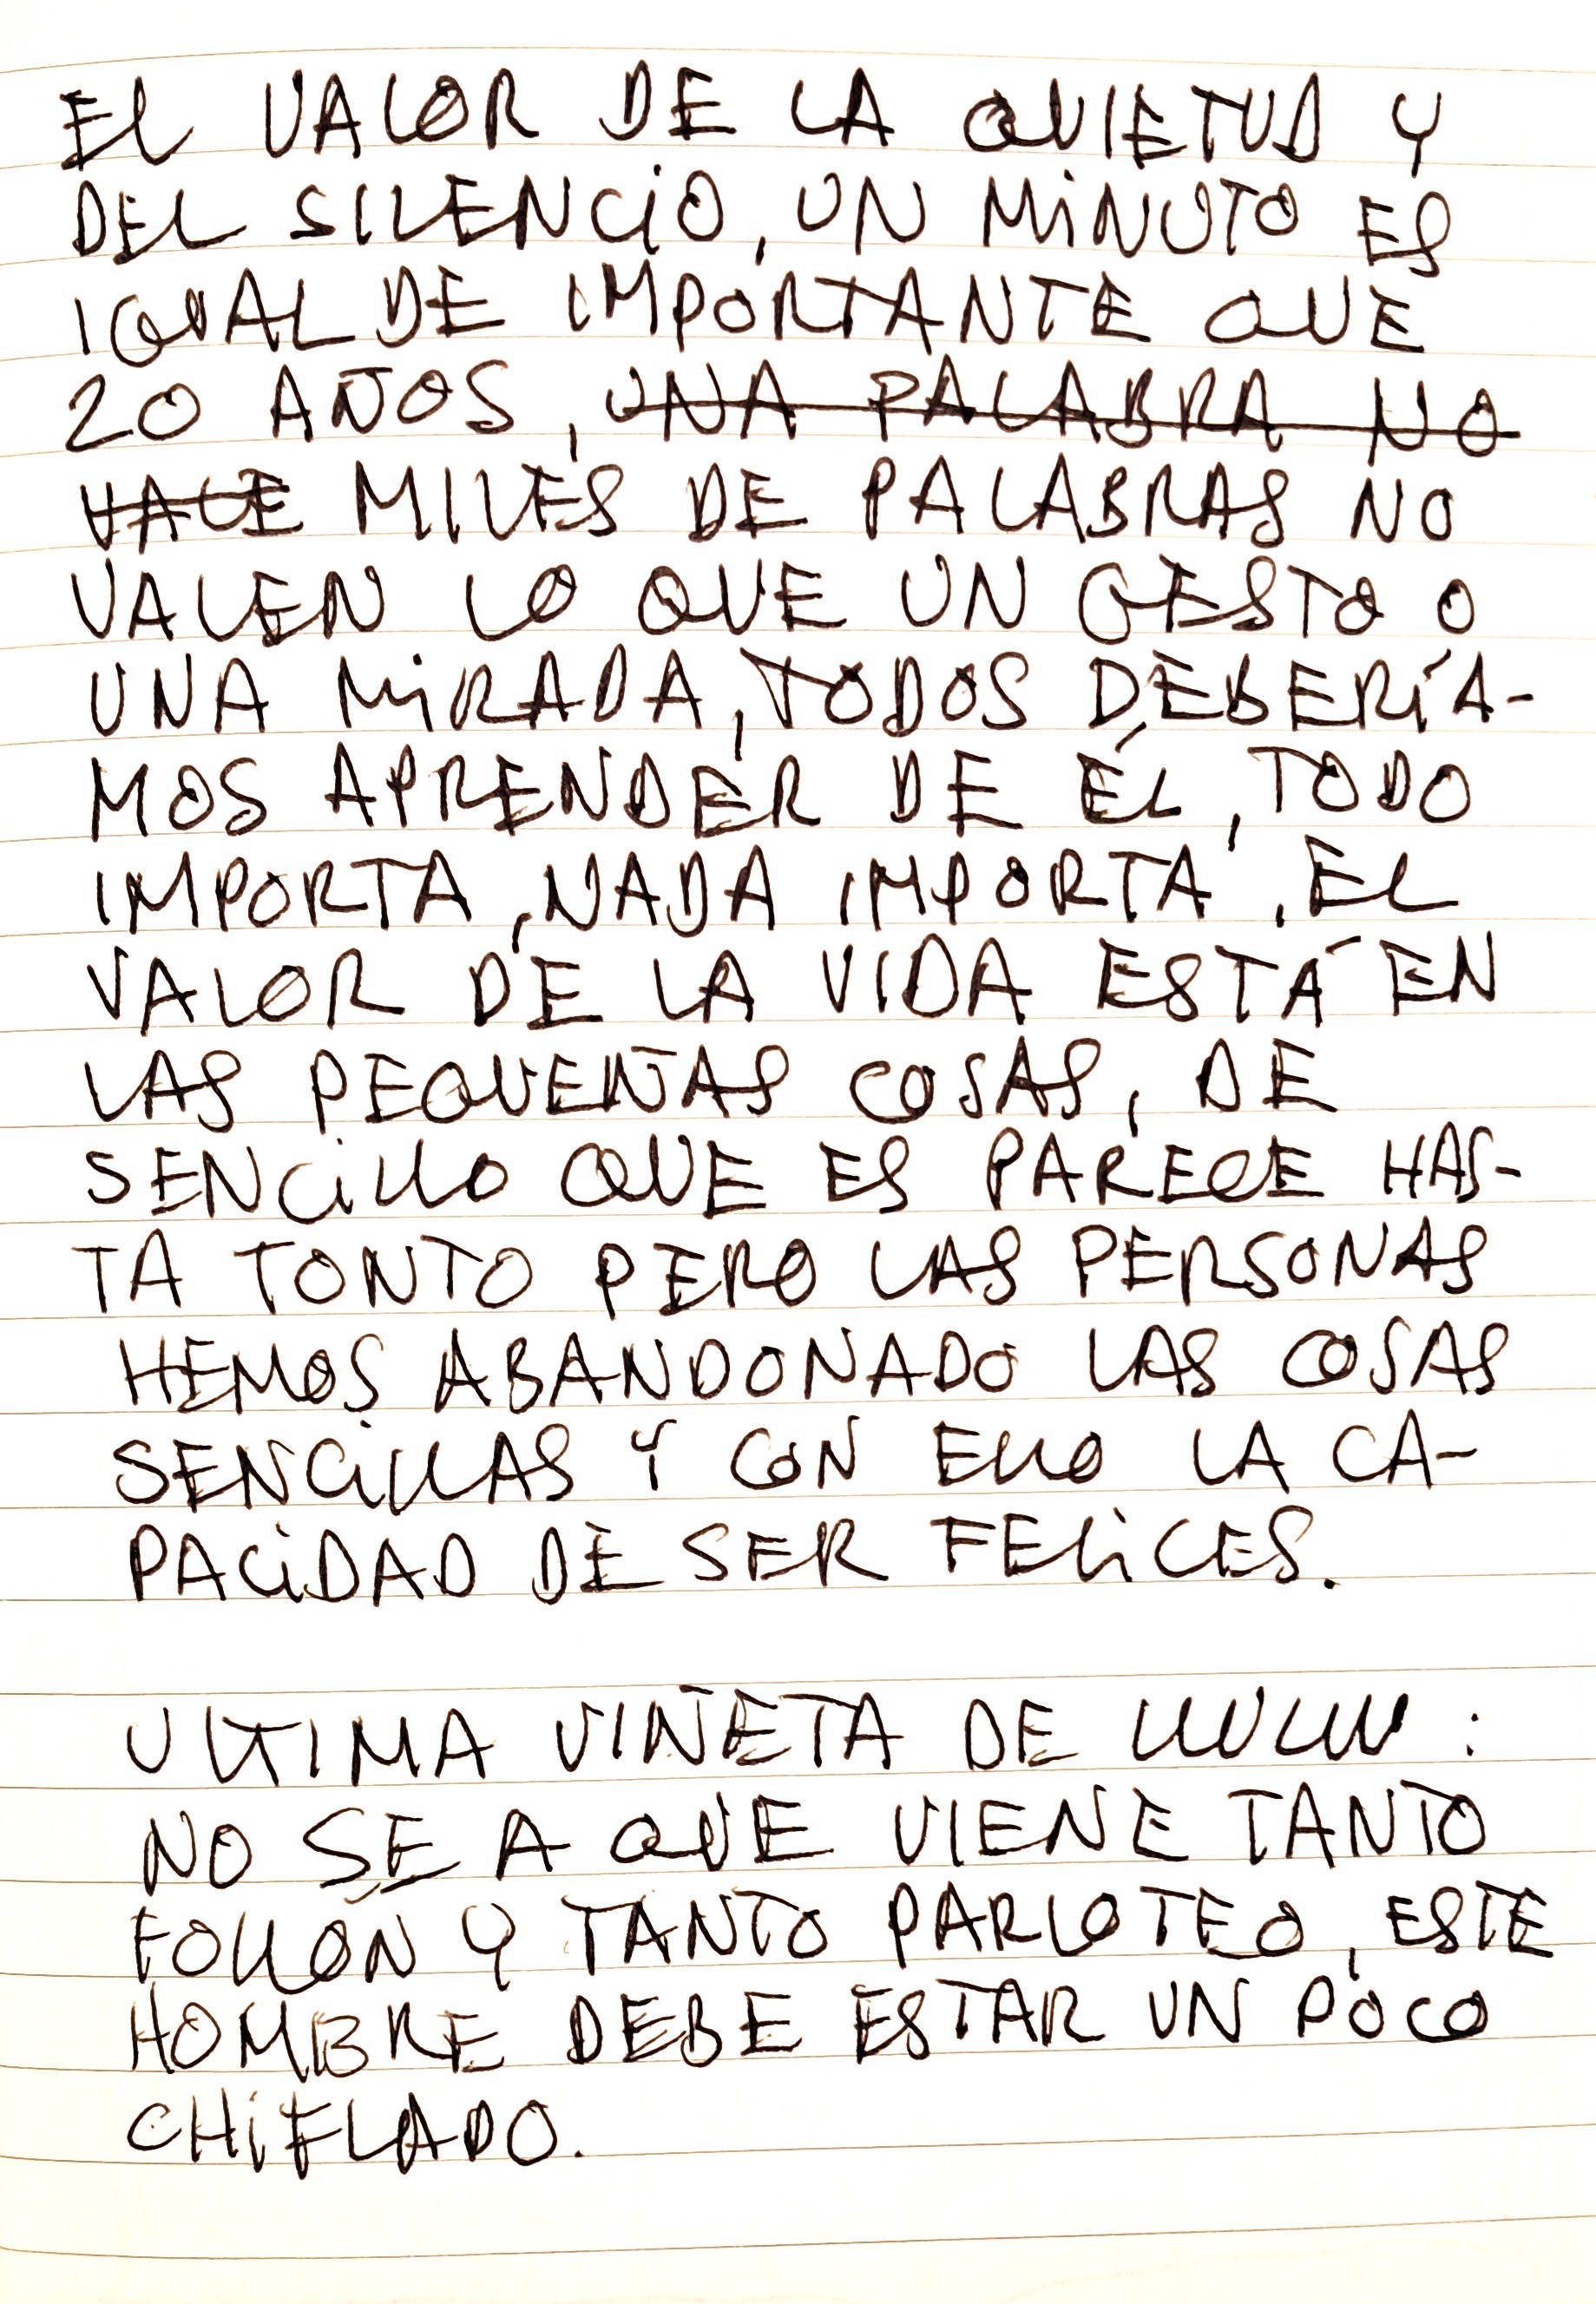 EL VALOR DE LA QUIETUD Y
DEL SILENCIO, UN MINUTO ES
IGUAL DE IMPORTANTE QUE
20 AÑOS, UNA PALABRA NO
VALE MILES DE PALABRAS NO
VALEN LO QUE UN GESTO O
UNA MIRADA, TODOS DEBERÍA-
MOS APRENDER DE ÉL, TODO
IMPORTA, NADA IMPORTA. EL
VALOR DE LA VIDA ESTÁ EN
LAS PEQUEÑAS COSAS, DE
SENCILLO QUE ES PARECE HAS-
TA TONTO PERO LAS PERSONAS
HEMOS ABANDONADO LAS COSAS
SENCILLAS Y CON ELLO LA CA-
PACIDAD DE SER FELICES.
ULTIMA VIÑETA DE LLULLU :
NO SE A QUE VIENE TANTO
FOLLÓN Y TANTO PARLOTEO, ESTE
HOMBRE DEBE ESTAR UN POCO
CHIFLADO.